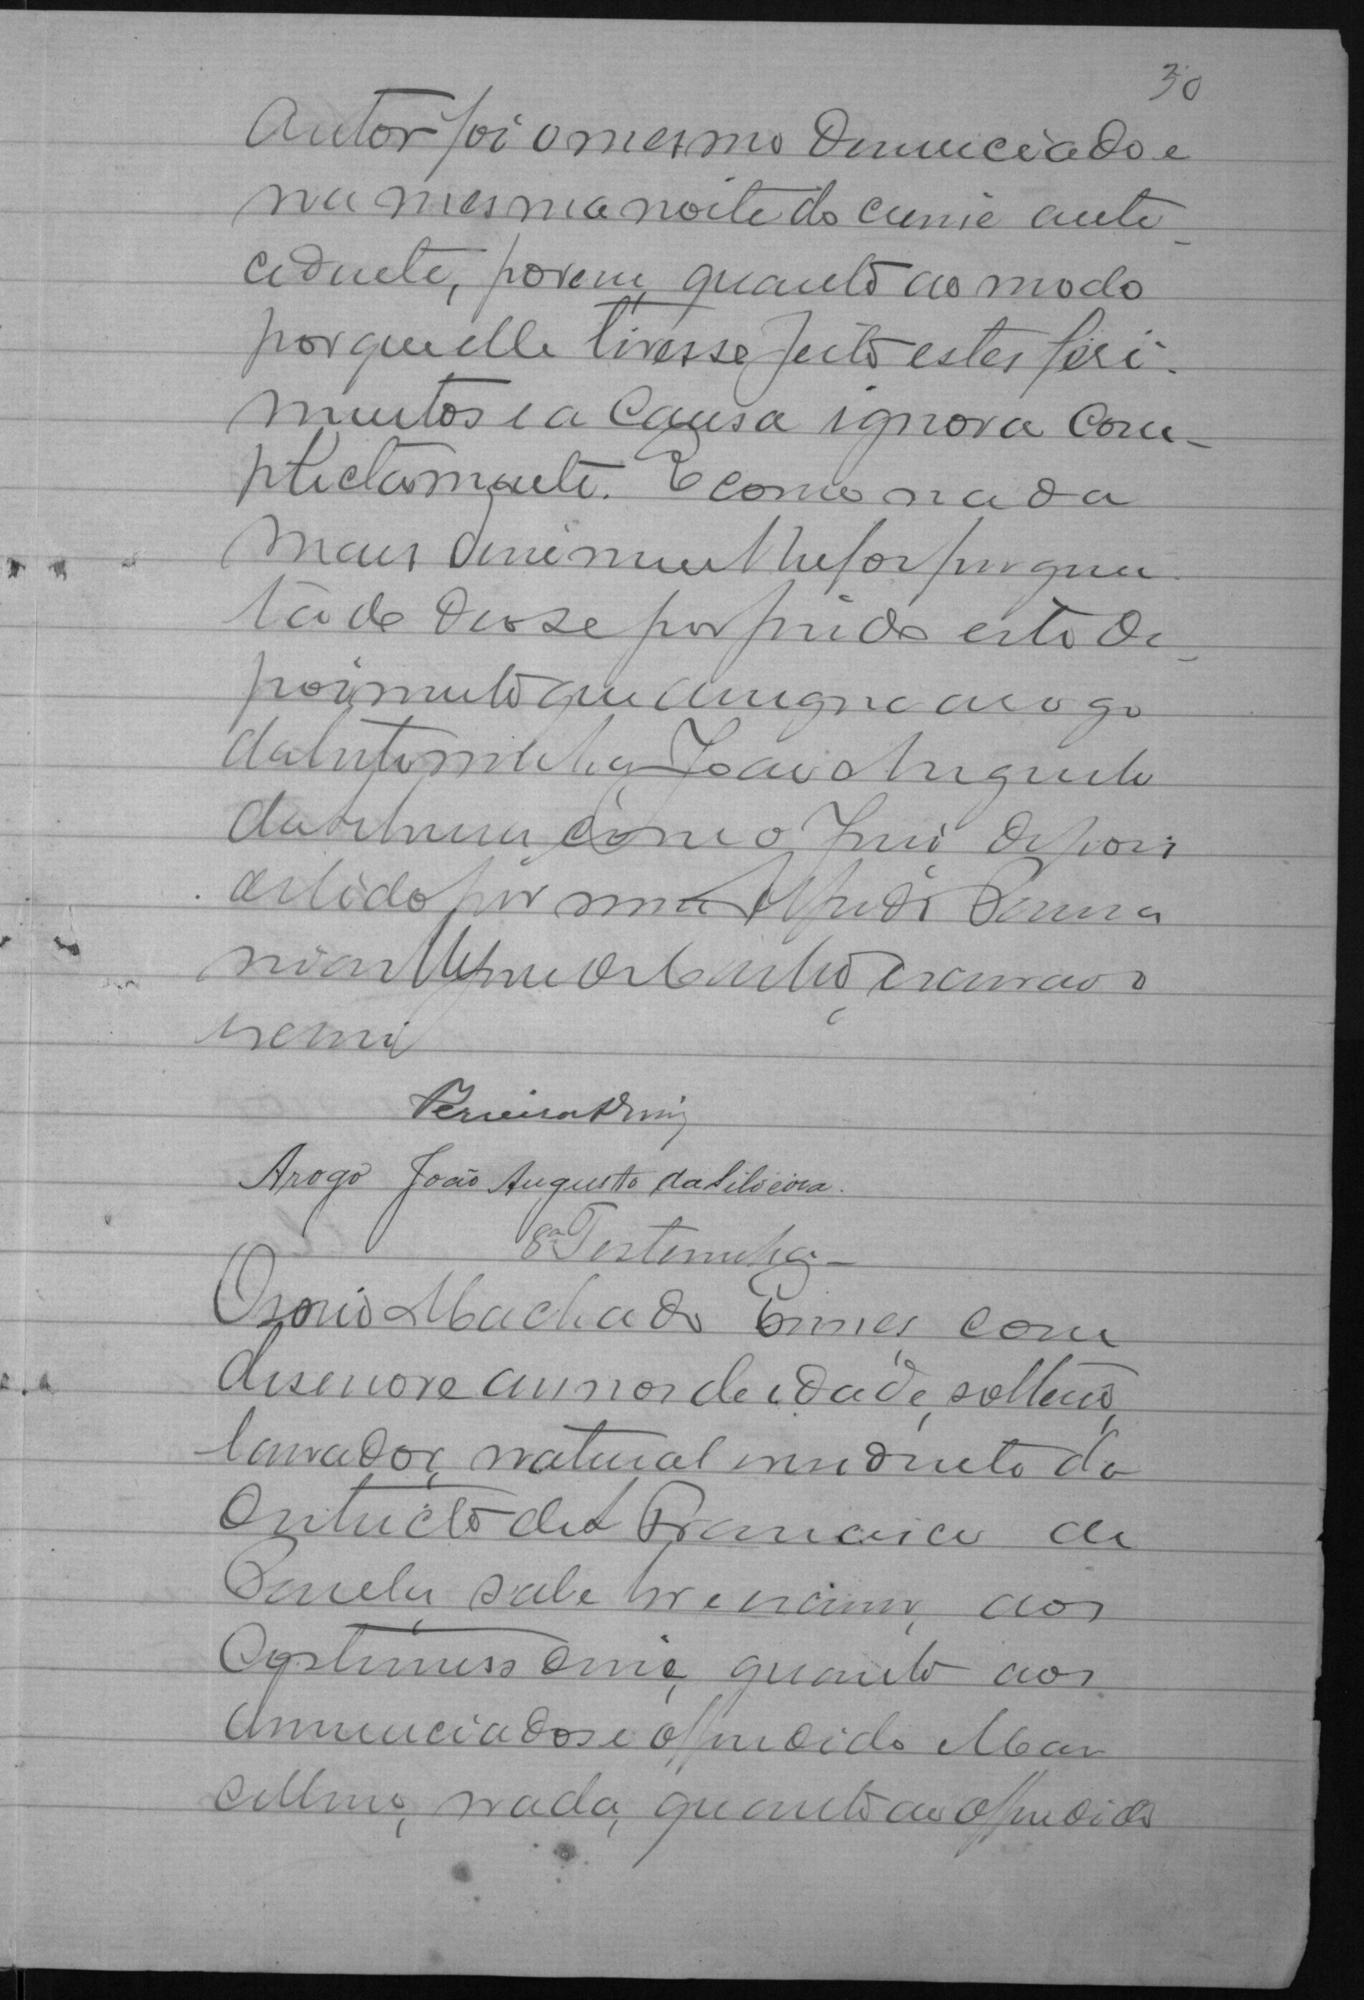 30
autor foi o mesmo denunciado e
na mesma noite do crime ante-
cedente, porem, quanto ao modo
por que elle tivesse feito estes feri-
mentos e a causa ignora com-
plectamente. E como nada
mais disse nem lhe foi pergun-
tado deo se por findo este de-
poimento que assigna a rogo
da testemunha João Augusto
da Silveira com o Juiz depois
de lido por mim Alfredo
escrivão o
escrevi
Arogo João Augusto da Silveira.
8ª Testemunha
Osorio Machado com
desenove annos de idade, solteiro,
lavrador, natural e residente do
Districto de S Francisco de
Paula, sabe ler e escrever, aos
costumes disse, quanto aos
denunciados e offendido Mar
cellino, nada, quanto ao offendido